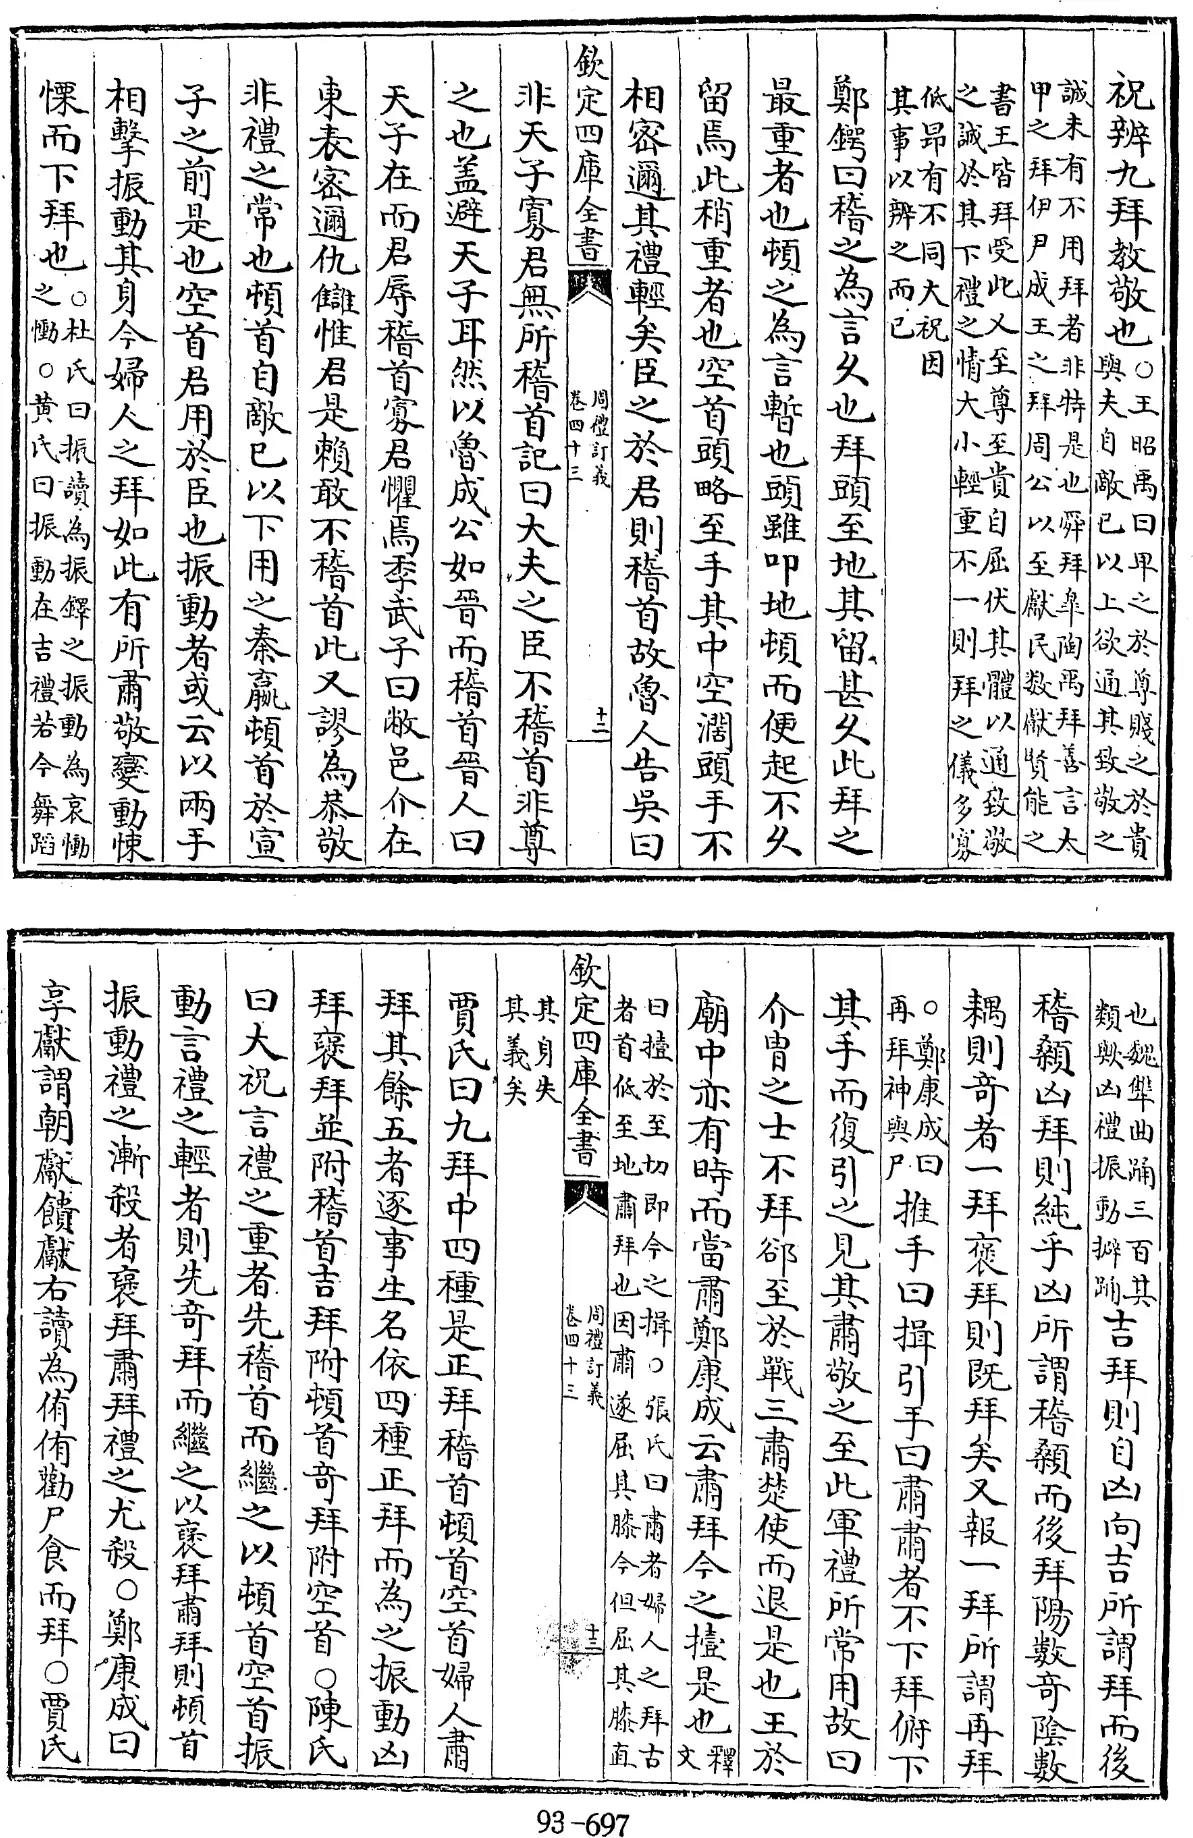 祝辨九拜教敬也○王昭禹曰卑之於尊賤之於貴
與夫自敵已以上欲通其致敬之
誠未有不用拜者非特是也舜拜臯陶禹拜善言太
甲之拜伊尹成王之拜周公以至獻民數獻賢能之
書王皆拜受此又至尊至貴自屈伏其體以通致敬
之誠於其下禮之情大小輕重不一則拜之儀多寡
低昻有不同大祝因
其事以辨之而已
鄭鍔曰稽之為言久也拜頭至地其留甚久此拜之
最重者也頓之為言暫也頭雖叩地頓而便起不久
留焉此稍重者也空首頭略至手其中空濶頭手不
相密邇其禮輕矣臣之於君則稽首故魯人告吳曰
欽定四庫全書
周禮訂義
卷四十三
十二
非天子寡君無所稽首記曰大夫之臣不稽首非尊
之也盖避天子耳然以魯成公如晉而稽首晉人曰
天子在而君辱稽首寡君懼焉季武子曰敝邑介在
東表密邇仇讎惟君是賴敢不稽首此又謬為恭敬
非禮之常也頓首自敵已以下用之秦嬴頓首於宣
子之前是也空首君用於臣也振動者或云以兩手
相擊振動其身今婦人之拜如此有所肅敬變動悚
慄而下拜也○杜氏曰振讀為振鐸之振動為哀慟
之慟○黄氏曰振動在吉禮若今舞蹈
也魏犫曲踊三百其
類歟凶禮振動擗踊
吉拜則自凶向吉所謂拜而後
稽顙凶拜則純乎凶所謂稽顙而後拜陽數奇隂數
耦則奇者一拜褒拜則既拜矣又報一拜所謂再拜
○鄭康成曰
再拜神與尸
推手曰揖引手曰肅肅者不下拜俯下
其手而復引之見其肅敬之至此軍禮所常用故曰
介胄之士不拜郤至於戰三肅楚使而退是也王於
廟中亦有時而當肅鄭康成云肅拜今之撎是也釋
文
曰撎於至切即今之揖○張氏曰肅者婦人之拜古
者首低至地肅拜也因肅遂屈其膝今但屈其膝直
欽定四庫全書
周禮訂義
卷四十三
十三
其身失
其義矣
賈氏曰九拜中四種是正拜稽首頓首空首婦人肅
拜其餘五者逐事生名依四種正拜而為之振動凶
拜褒拜並附稽首吉拜附頓首奇拜附空首○陳氏
曰大祝言禮之重者先稽首而繼之以頓首空首振
動言禮之輕者則先奇拜而繼之以褒拜肅拜則頓首
振動禮之漸殺者褒拜肅拜禮之尤殺○鄭康成曰
享獻謂朝獻饋獻右讀為侑侑勸尸食而拜○賈氏
93-697